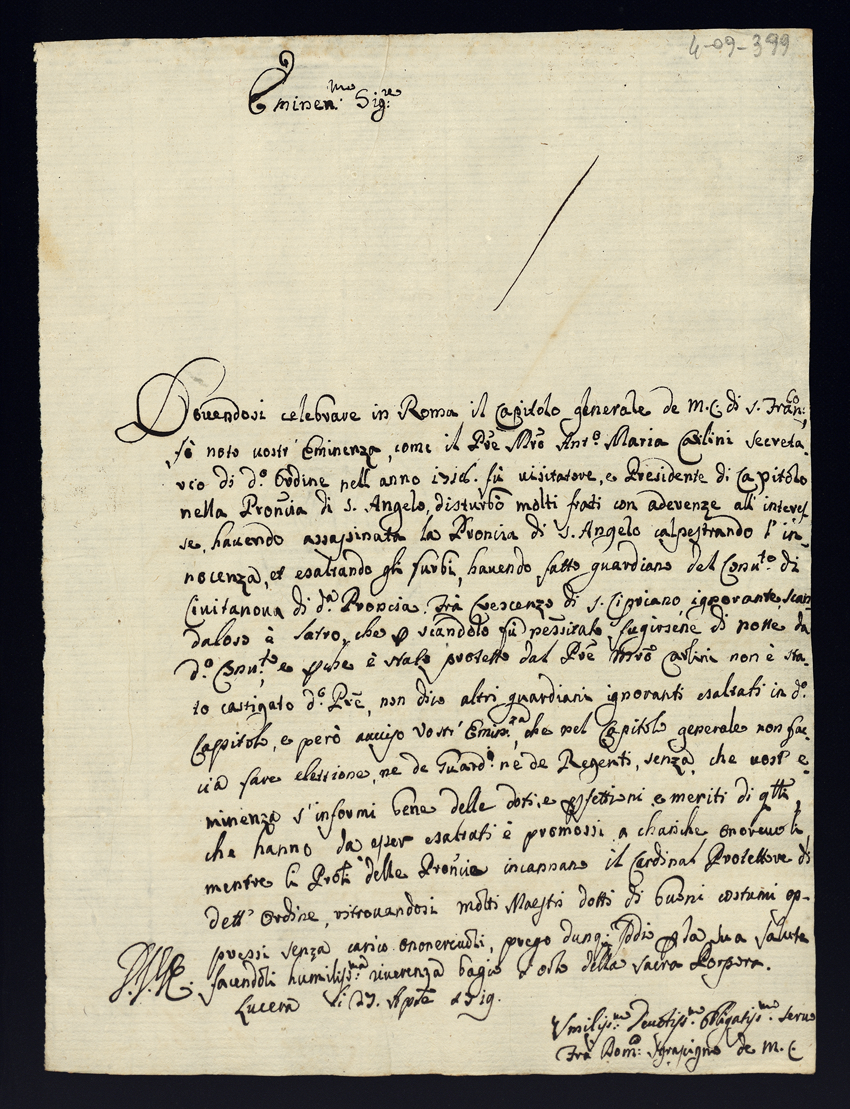 4-09-399
Eminen.mo Sig.re
Dovendosi celebrare in Roma il Capitolo generale de M.C. di S. Fran.co,
fò noto vostr'Eminenza, come il Pre Mro Ant.o Maria Carlini secreta-
rio di d.o Ordine nell'anno 1716. fù visitatore, e Presidente di Capitolo
nella Proncia di S. Angelo, disturbò molti frati con aderenze all'interes-
se, havendo assassinata la Proncia di S. Angelo calpestrando l'in-
nocenza, et esaltando gli furbi, havendo fatto guardiano del Conv.to di
Civitanova di d.a Proncia Frà Crescenzo di S. Cipriano ignorante, scan-
daloso è latro, che p scandolo fù necsitato fugirsene di notte da
d.o Conv.to e pche è stato protetto dal Pre Mro Carlini non è sta-
to castigato d.o Pre, non dico altri guardiani ignoranti esaltati in d.o
Capitolo, e però avviso Vostr'Emin.za, che nel Capitolo generale non fac-
cia fare elettione, ne de Guard.i nè de Regenti, senza, che vostr'e-
minenza s'informi bene delle doti, e pfettioni e meriti di qlli,
che hanno da esser esaltati è promossi a chariche onorevoli,
mentre li Proli delle Proncie incannano il Cardinal Protettore di
dett'Ordine, ritrovandosi molti Maestri dotti di buoni costumi op-
pressi senza carico ononerevoli, prego dunq. Iddio p la sua salute
facendoli humiliss.ma riverenza bagio l'orlo della sacra Porpora.
Lucera li 27. Aprle 1719.
Vmiliss.mo Devotiss.mo Obligatiss.mo servo
Frà Dom.co de M.C.